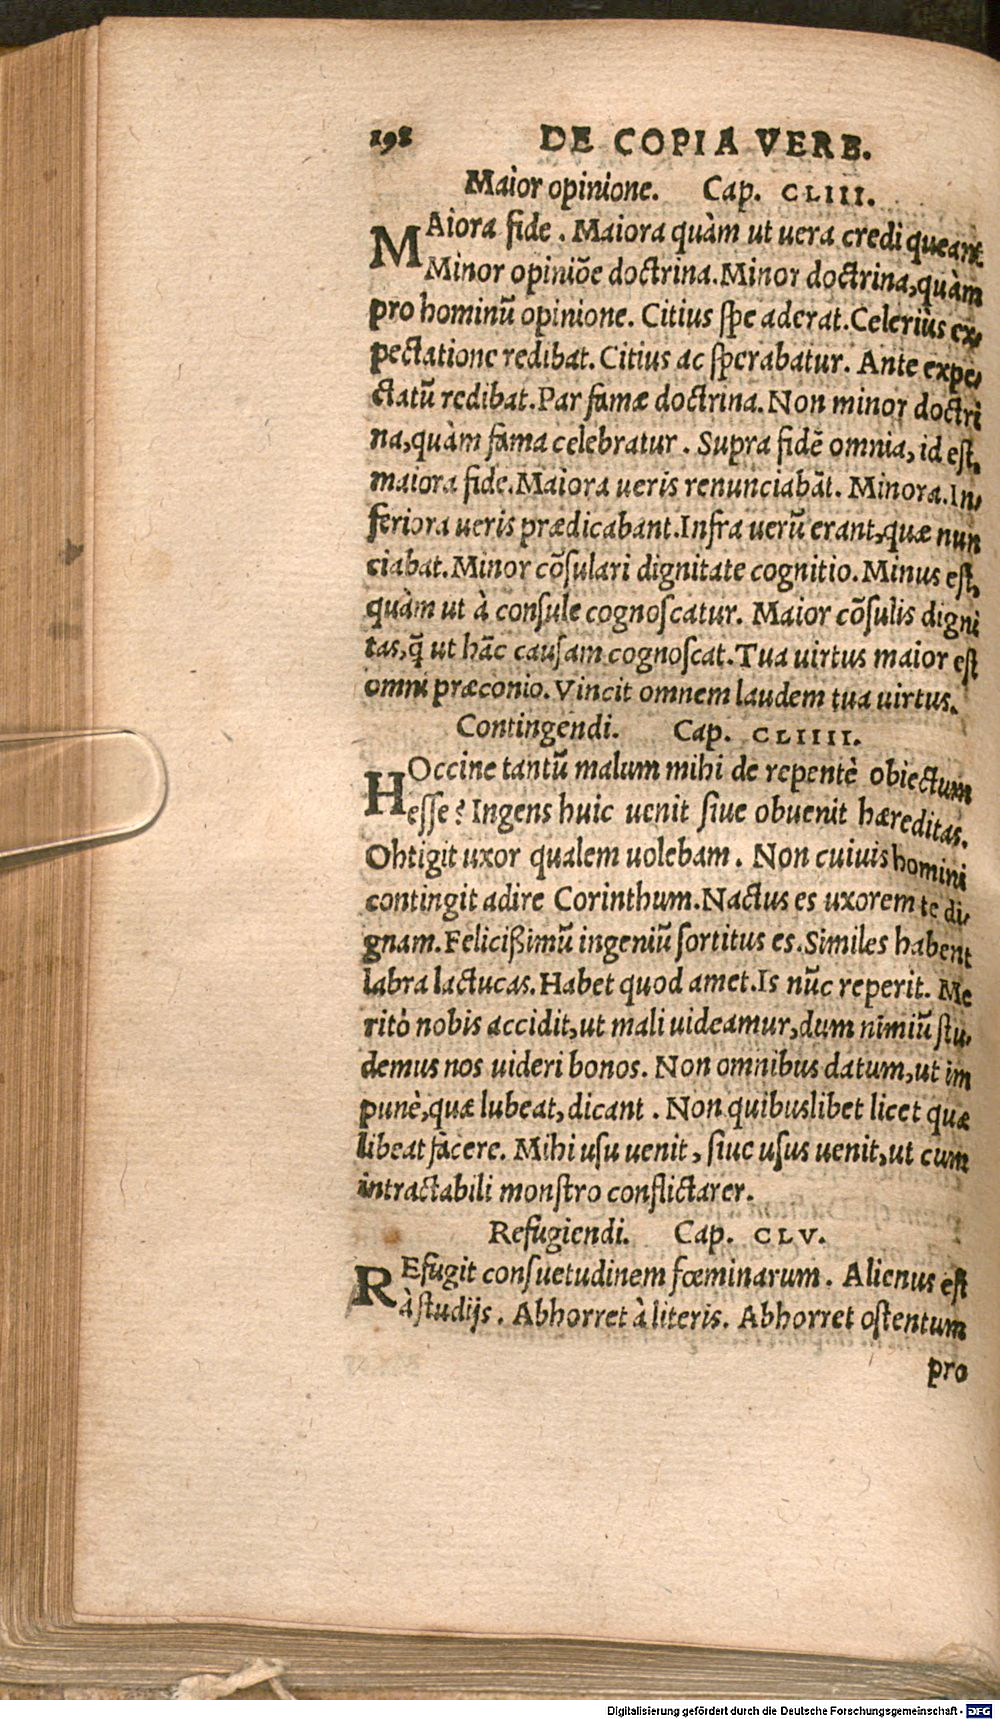 198 DE COPIA VERB.
Maior opinione. Cap. CLIII.
MAiora fide. Maiora quàm ut uera credi queant
Minor opiniõe doctrina. Minor doctrina, quàm
pro hominũ opinione. Citius spe aderat. Celerius ex-
pectatione redibat. Citius ac sperabatur. Ante expe-
ctatũ redibat. Par famæ doctrina. Non minor doctri
na, quàm fama celebratur. Supra fidẽ omnia, id est,
maiora fide. Maiora ueris renunciabãt. Minora. In-
feriora ueris prædicabant. Infra uerũ erant, quæ nun
ciabat. Minor cõsulari dignitate cognitio. Minus est,
quàm ut à consule cognoscatur. Maior cõsulis digni
tas, q̃ ut hãc causam cognoscat. Tua uirtus maior est
omni præconio. Vincit omnem laudem tua uirtus.
Contingendi. Cap. CLIIII.
HOccine tantũ malum mihi de repentè obiectum
esse? Ingens huic uenit siue obuenit hæreditas.
Obtigit uxor qualem uolebam. Non cuiuis homini
contingit adire Corinthum. Nactus es uxorem te di-
gnam. Felicißimũ ingeniũ sortitus es. Similes habent
labra lactucas. Habet quod amet. Is nũc reperit. Me
ritò nobis accidit, ut mali uideamur, dum nimiũ stu-
demus nos uideri bonos. Non omnibus datum, ut im
punè, quæ lubeat, dicant. Non quibuslibet licet quæ
libeat fàcere. Mihi usu uenit, siue usus uenit, ut cum
intractabili monstro conflictarer.
Refugiendi. Cap. CLV.
REfugit consuetudinem fœminarum. Alienus est
à studijs. Abhorret à literis. Abhorret ostentum
pro
Digitalisierung gefördert durch die Deutsche Forschungsgemeinschaft - DFG